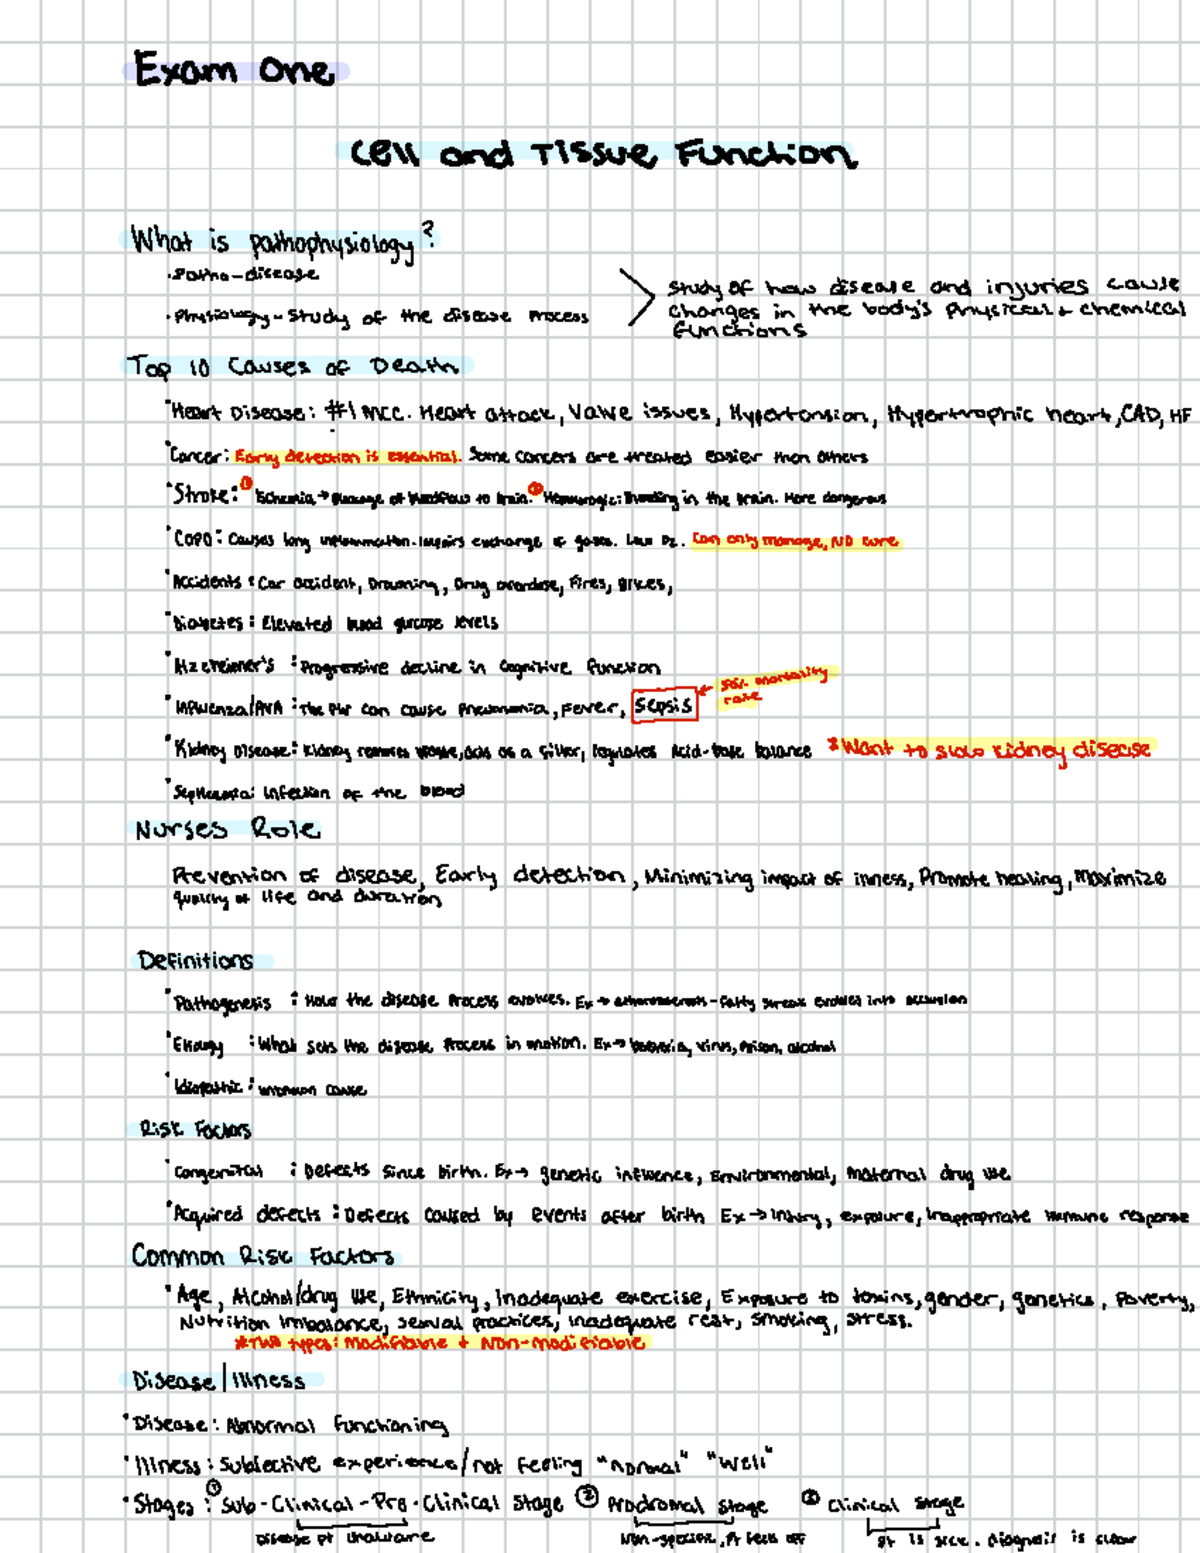 Exam One
Cell and Tissue Function
What is pathophysiology?
·Patho-disease
·Physiology-Study of the disease process
Study of how disease and injuries cause
changes in the body's physical + chemical
functions
Top 10 Causes of Death
·Heart Disease: #1 MCC. Heart attack, Valve issues, Hypertension, Hypertrophic heart, CAD, HF
·Cancer: Early detection is essential. Some cancers are treated easier then others
·Stroke: ① Ischemia→ of bloodflow to brain. ② Hemorrhagic: Bleeding in the brain. More dangerous
·COPD: Causes long inflammation. Impairs exchange of gases. Low O2. Can only manage, NO cure
·Accidents: Car accident, Drowning, Drug overdose, Fires, Bikes,
·Diabetes: Elevated blood glucose levels
·Alzheimer's: Progressive decline in cognitive function
·Influenza/PNA: The flu can cause pneumonia, fever, Sepsis ← mortality
rate
·Kidney Disease: Kidney removes waste, acts as a filter, regulates Acid-base balance *Want to slow kidney disease
·Septicemia: Infection of the blood
Nurses Role
Prevention of disease, Early detection, Minimizing impact of illness, Promote healing, Maximize
quality of life and duration
Definitions
·Pathogenesis: How the disease process evolves. Ex→ atherosclerosis-fatty streak evolves into occlusion
·Etiology: What sets the disease process in motion. Ex→ bacteria, virus, Poison, alcohol
·Idiopathic: unknown cause
Risk Factors
·Congenital: Defects since birth. Ex→ genetic influence, Environmental, Maternal drug use
·Acquired defects: Defects caused by events after birth Ex→ Injury, exposure, Inappropriate immune response
Common Risk Factors
·Age, Alcohol/drug use, Ethnicity, Inadequate exercise, Exposure to toxins, gender, genetics, Poverty,
Nutrition imbalance, sexual practices, inadequate rest, Smoking, stress.
*Two types: Modifiable + Non-modifiable
Disease/Illness
·Disease: Abnormal functioning
·Illness: Subjective experience/not feeling "normal" "Well"
·Stages: ① Sub-Clinical-Pre-Clinical stage ② Prodromal Stage ③ Clinical stage
Disease pt unaware Non-specific, Pt feels off Pt is sick. diagnosis is clear